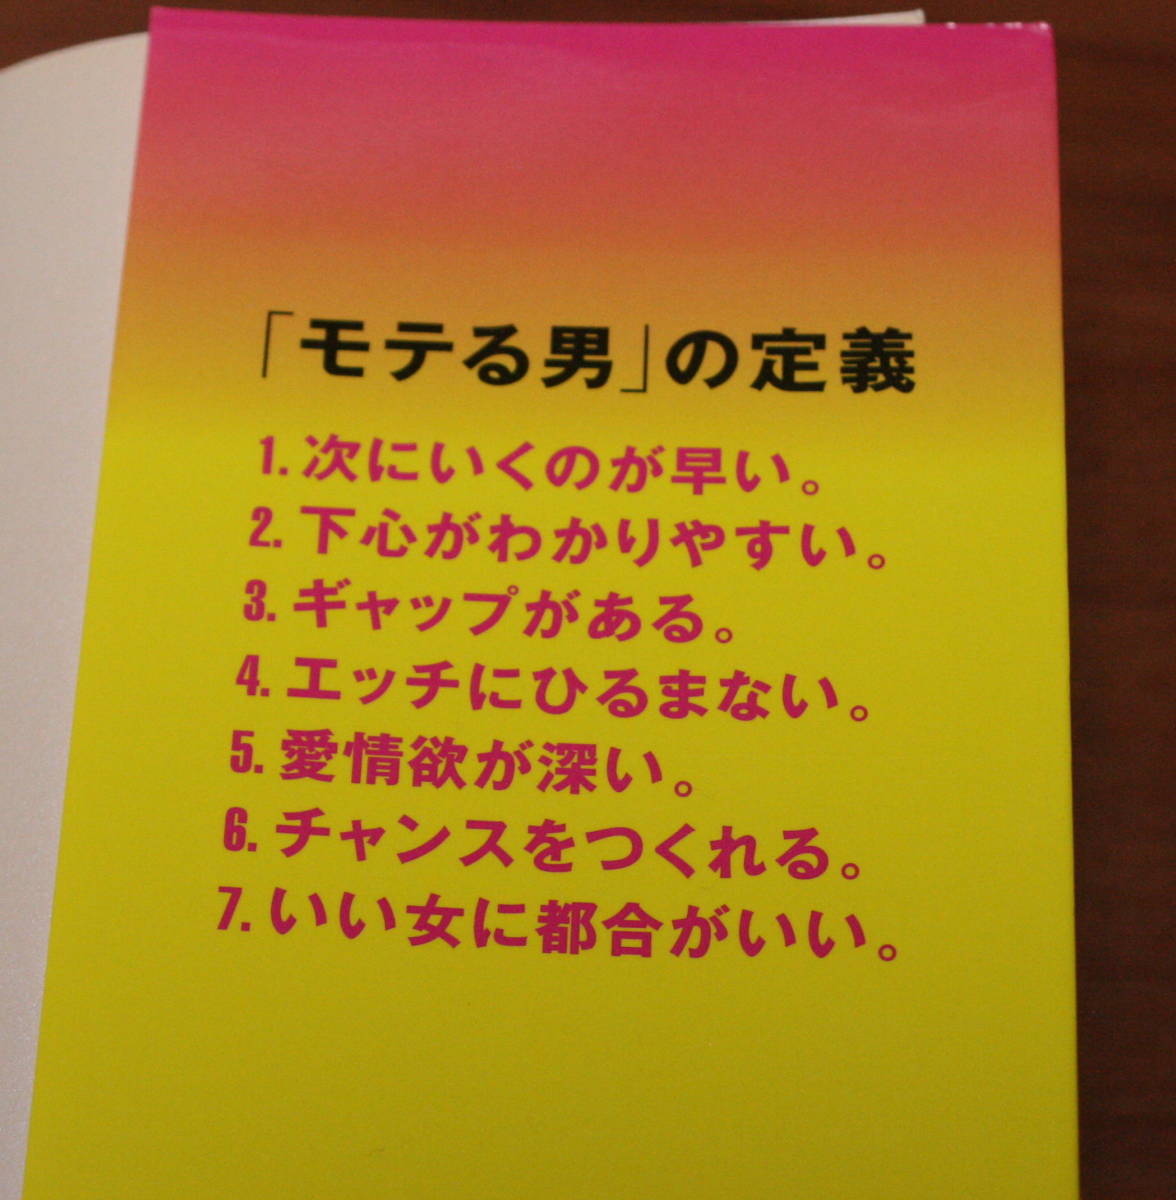 「モテる男」の定義
1. 次にいくのが早い。
2. 下心がわかりやすい。
3. ギャップがある。
4. エッチにひるまない。
5. 愛情欲が深い。
6. チャンスをつくれる。
7. いい女に都合がいい。